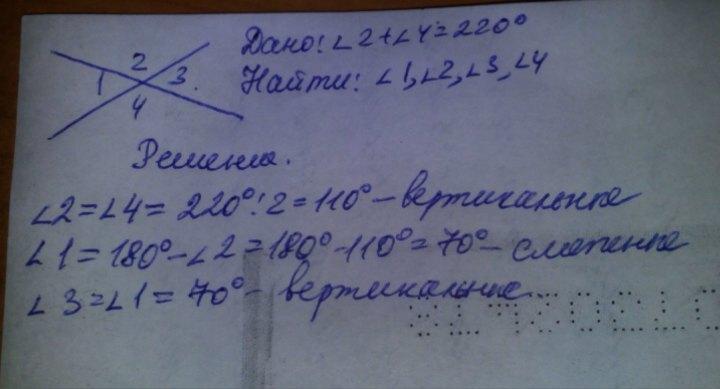 Дано: ∠2+∠4=220°
Найти: ∠1, ∠2, ∠3, ∠4
2
1 3
4
Решение.
∠2=∠4= 220°:2=110° – вертикальные
∠1=180°-∠2=180°-110°=70° – смежные
∠3=∠1=70° – вертикальные